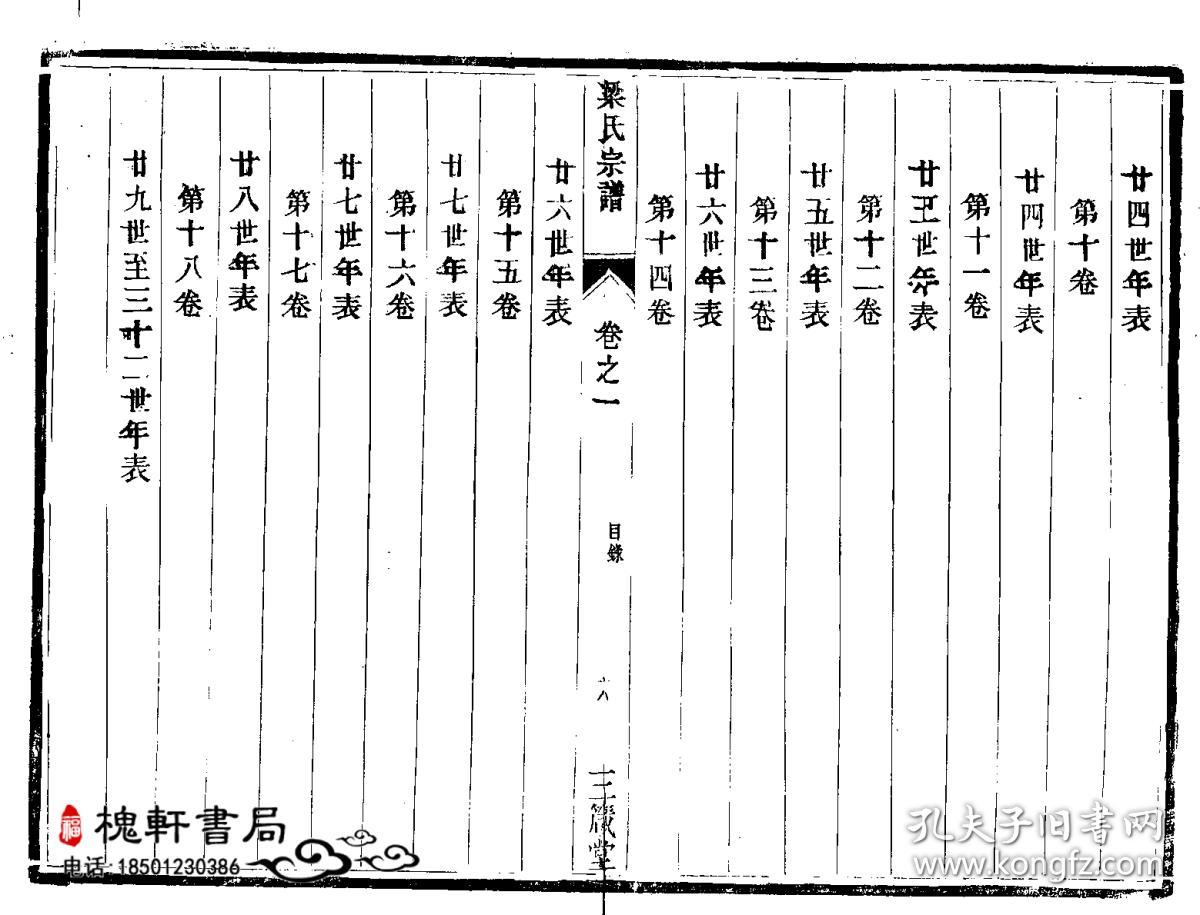 廿四世年表
第十卷
廿四世年表
第十一卷
廿五世年表
第十二卷
廿五世年表
第十三卷
廿六世年表
第十四卷
梁氏宗譜
卷之一
目錄
六
三箴堂
廿六世年表
第十五卷
廿七世年表
第十六卷
廿七世年表
第十七卷
廿八世年表
第十八卷
廿九世至三十二世年表
福
槐軒書局
电话:18501230386
孔夫子旧书网
www.kongfz.com